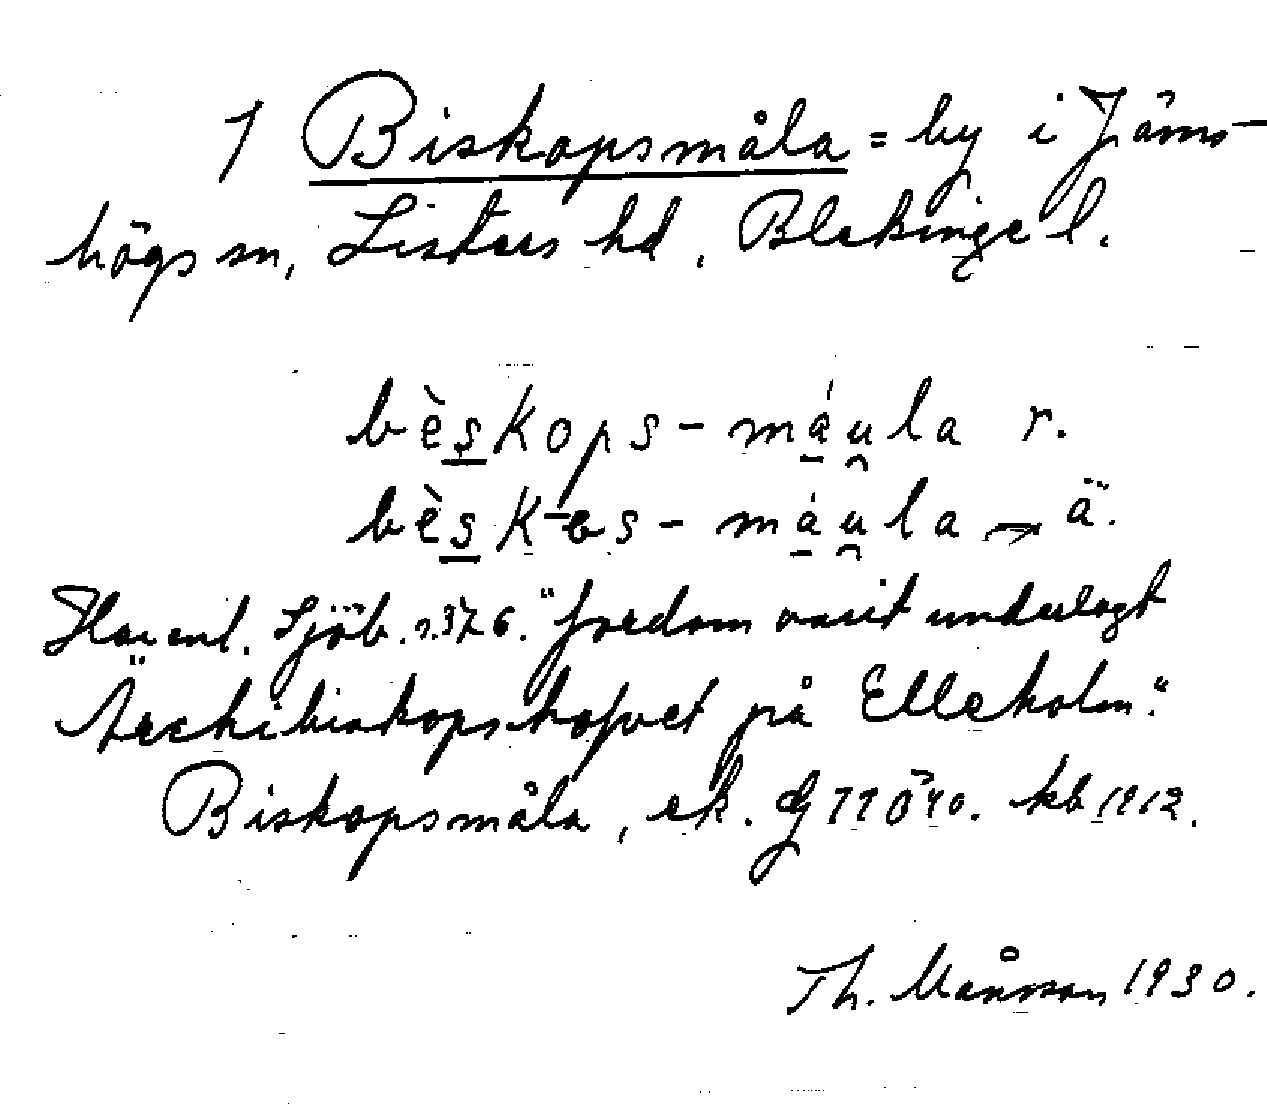 1 Biskopsmåla = by i Jäms-
högs sn, Listers hd, Blekinge l.
bèskops-máu̯la r.
bèskes-máu̯la → ä.
Sjöb. s. 376. "fordom varit underlagt
Ärchibiskopshofvet på Elleholm."
Biskopsmåla, ek. G 11 Ö 40. kb 1912.
Th. Månsson 1930.